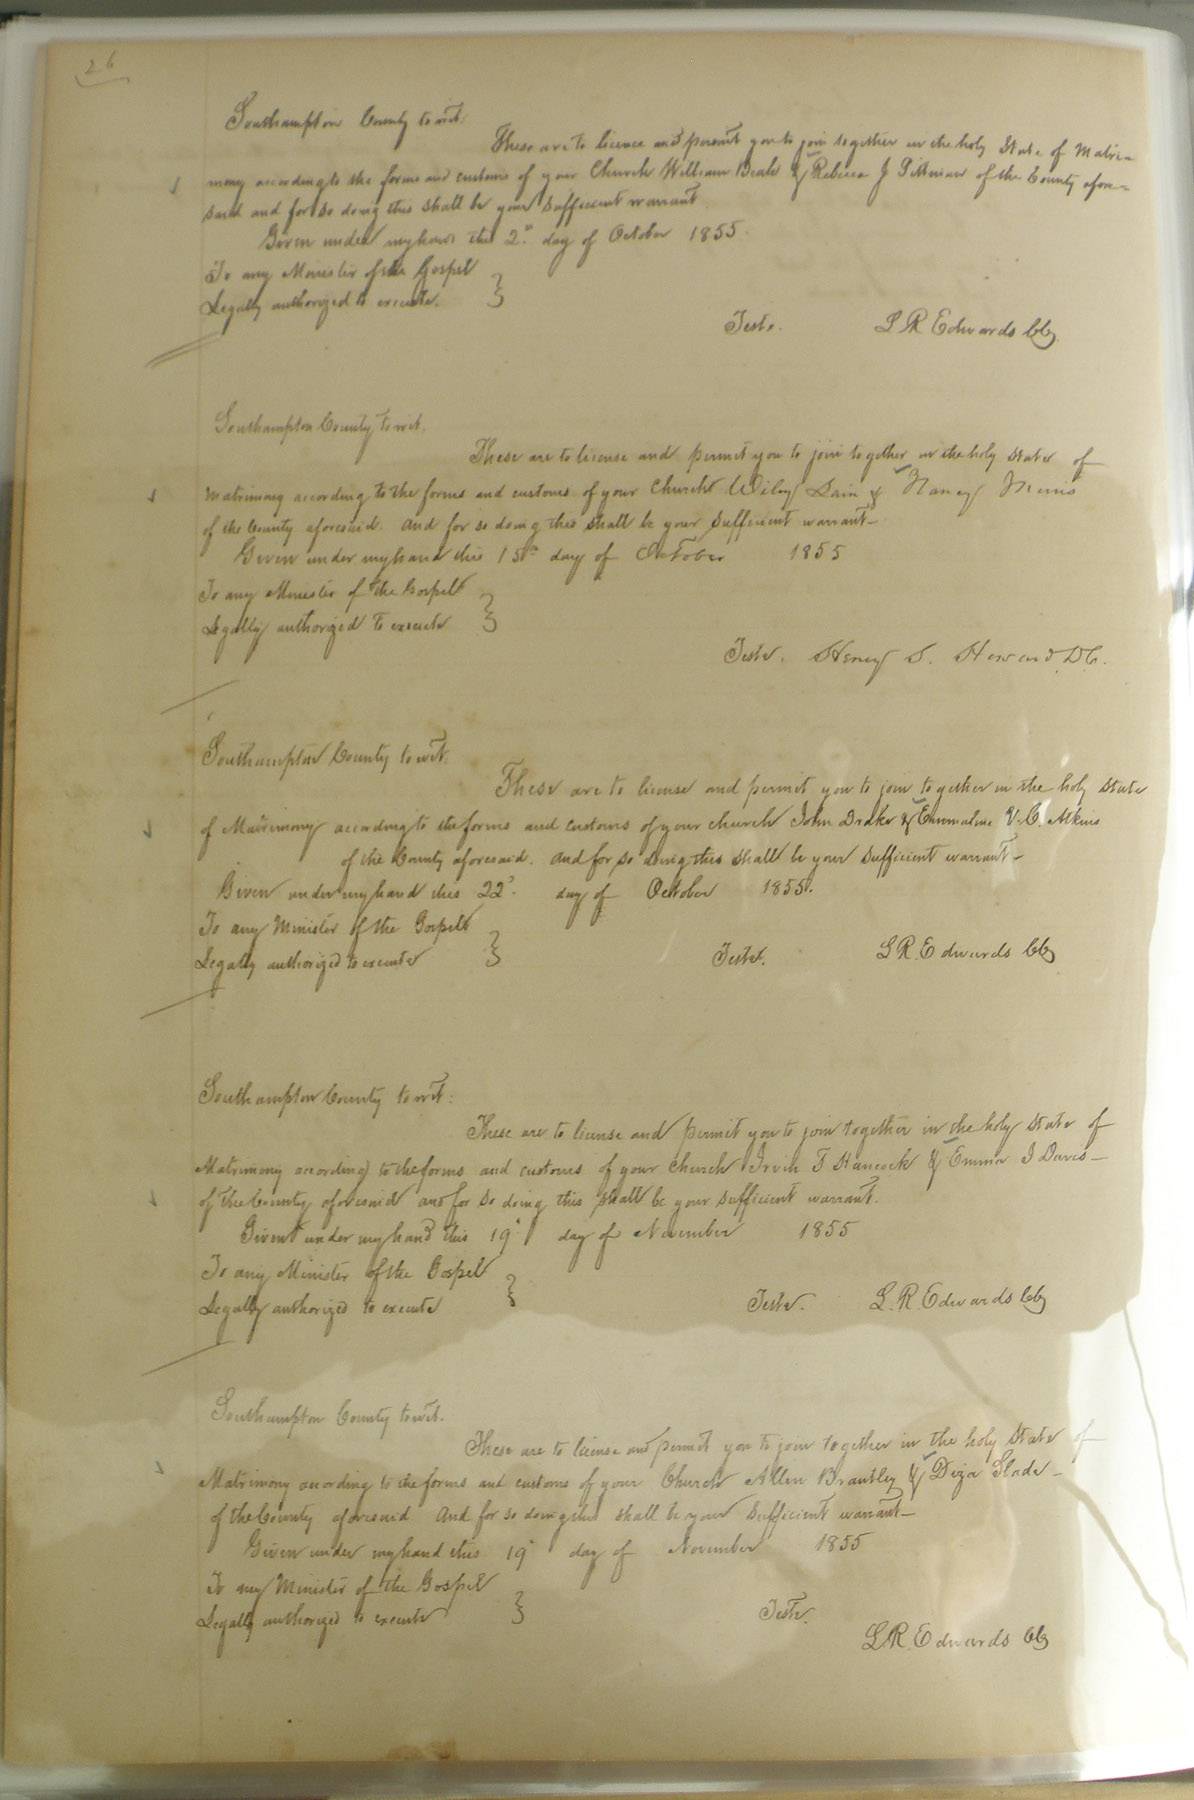 26
Southampton County to wit:
These are to licence and permit you to join together in the holy State of Matri-
mony according to the forms and customs of your Church William Beale & Rebecca J Pittman of the County afore-
said and for so doing this shall be your sufficient warrant
Given under my hand this 2nd day of October 1855.
To any Minister of the Gospel
Legally authorized to execute.
Teste. L R Edwards Clk
Southampton County to wit.
These are to license and permit you to join together in the holy state of
Matrimony according to the forms and customs of your Church Wiley Lain & Nancy
of the County aforesaid. And for so doing this shall be your sufficient warrant-
Given under my hand this 15th day of October 1855
To any Minister of the Gospel
Legally authorized to execute
Teste. Henry S. Howard D.C.
Southampton County to wit.
These are to license and permit you to join together in the holy state
of Matrimony according to the forms and customs of your church John Drake & Emmaline V. C. Atkins
of the County aforesaid. And for so doing this shall be your sufficient warrant-
Given under my hand this 22d. day of October 1855.
To any Minister of the Gospel
Legally authorized to execute
Teste. L R. Edwards Clk
Southampton County to wit:
These are to license and permit you to join together in the holy state of
Matrimony according to the forms and customs of your church Irvin T Hancock & Emma J Davis-
of the County aforesaid and for so doing this shall be your sufficient warrant.
Given under my hand this 19th day of November 1855
To any Minister of the Gospel
Legally authorized to execute
Teste. L. R. Edwards Clk
Southampton County to wit.
These are to license and permit you to join together in the holy State of
Matrimony acording to the forms and customs of your Church Allen Brantley & Diza Slade-
of the County aforesaid And for so doing this shall be your sufficient warrant-
Given under my hand this 19th day of November 1855
To any Minister of the Gospel
Legally authorized to execute
Teste.
L R. Edwards Clk